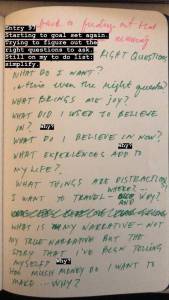 Entry 9?
Starting to goal set again.
Trying to figure out the
right questions to ask.
Still on my to do list:
simplify.
RIGHT QUESTIONS
WHAT DO I WANT?
even the right
WHAT BRINGS ME JOY?
WHAT DID I USED TO BELIEVE
IN? Why?
WHAT DO I BELIEVE IN NOW?
Why?
WHAT EXPERIENCES ADD TO
MY LIFE?
WHAT THINGS ARE DISTRACTIONS
WHERE?
I WANT TO TRAVEL - AND WHY?
WHAT IS MY NARRATIVE - NOT
MY TRUE NARRATIVE BUT THE
STORY THAT I'VE BEEN TELLING
MYSELF? Why?
HOW MUCH MONEY DO I WANT TO
MAKE - WHY?